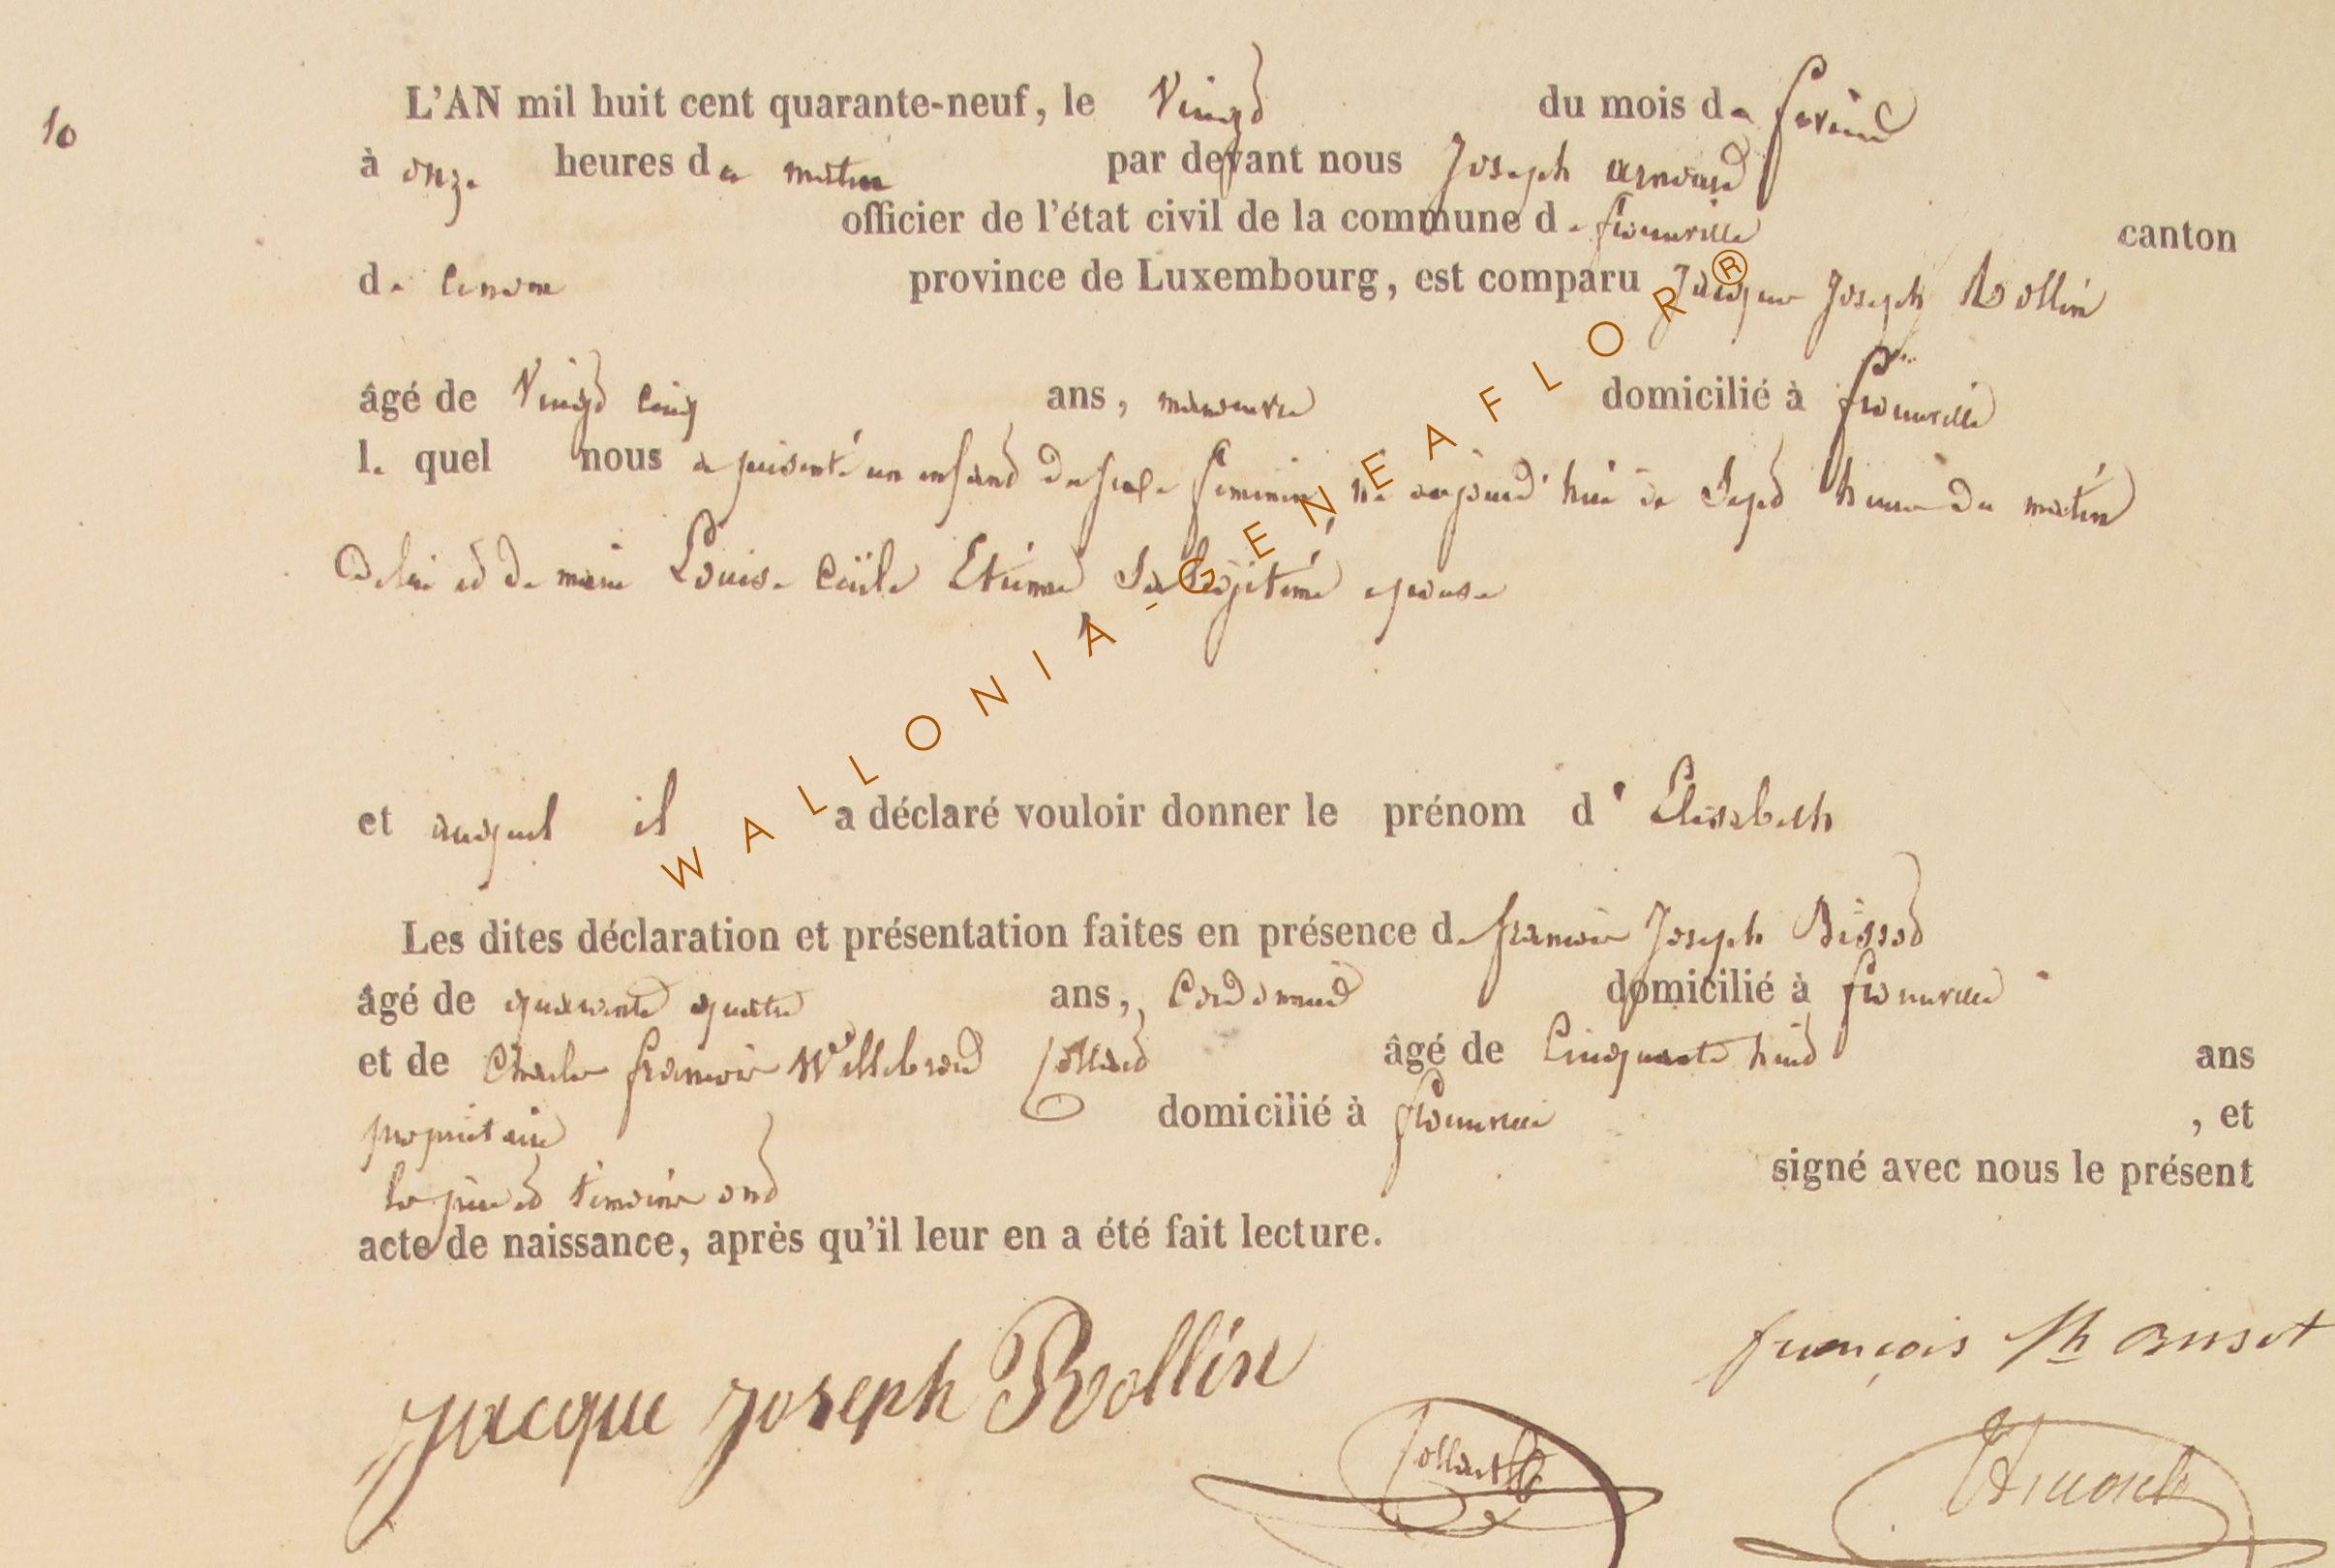 10
L'AN mil huit cent quarante-neuf, le Vingt du mois de fevrier
à onze heures du matin par devant nous Joseph arnould
officier de l'état civil de la commune de canton
de province de Luxembourg, est comparu Jacques Joseph Rollin
âgé de Vingt cinq ans, manoeuvre domicilié à
le quel nous a présenté un enfant du sexe feminin, né aujourd'hui à Sept heures du matin
De lui et de marie Louise Cécile Etienne Sa légitime epouse
et auquel il a déclaré vouloir donner le prénom d'Elisabeth
Les dites déclaration et présentation faites en présence de francois Joseph
âgé de quarante quatre ans, Cordonnier domicilié à
et de Charles francois Willebrord Collard âgé de Cinquante huit ans
propriétaire domicilié à , et
le père et témoins ont signé avec nous le présent
acte de naissance, après qu'il leur en a été fait lecture.
Jacque Joseph Rollin
françois
Collard
WALLONIA-GENEAFLOR®